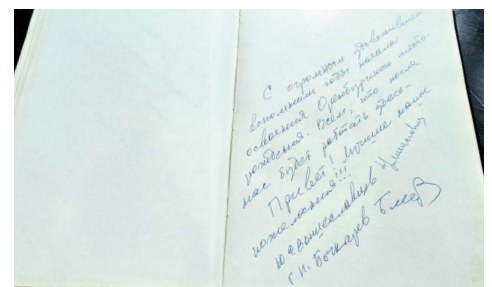 С огромным удовольствием
вспомнили годы начала
освоения Оренбургского место-
рождения. Всем, кто после
нас будет работать здесь –
Привет! Лучшие наши
пожелания!!!
Ю.Ф. Вышеславцев
Г.И. Бочкарев